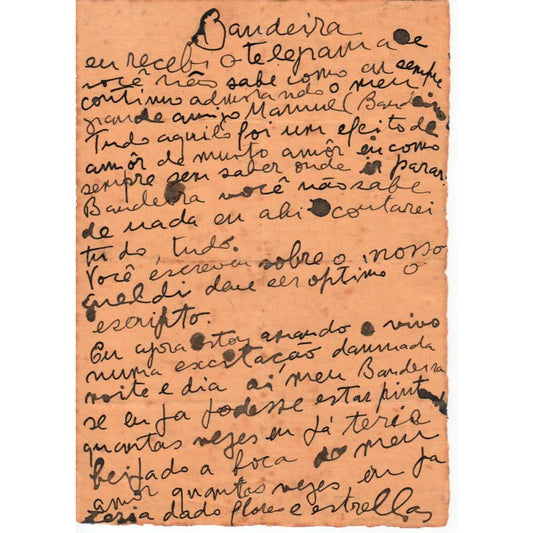 Bandeira
eu recebi o telegrama e
você não sabe como eu sempre
continuo admirando o meu
grande amigo Manuel (Bandeira
Tudo aquilo foi um efeito de
amôr de muito amôr eu como
sempre sem saber onde ir parar.
Bandeira você não sabe
de nada eu ahi contarei
tudo, tudo.
Você escreveu sobre o nosso
deve ser optimo o
escripto.
Eu agora estou amando e vivo
numa excitação damnada
noite e dia ai meu Bandeira
se eu já podesse estar pintando
quantas vezes eu já teria
beijado a boca do meu
amôr quantas vezes, eu já
teria dado flores e estrellas